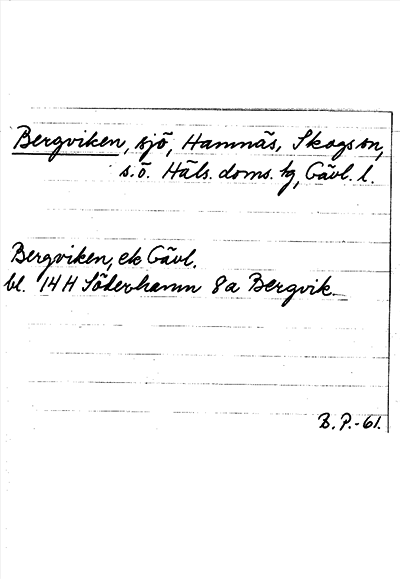 Bergviken, sjö, Hamnäs, Skogs sn,
s.ö. Häls. doms. tg, Gävl. l.
Bergviken, ek Gävl.
bl. 14 H Söderhamn 8a Bergvik
B. P.-61.